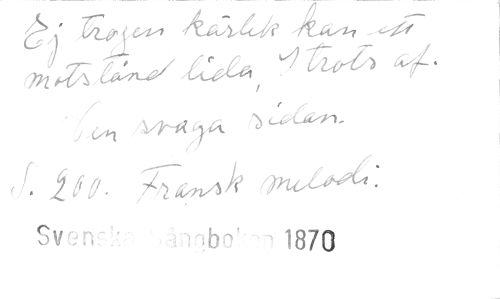 Ej trogen kärlek kan ett
motstånd lida, I trots af.
Den svaga sidan.
S. 200. Fransk melodi.
Svenska Sångboken 1870